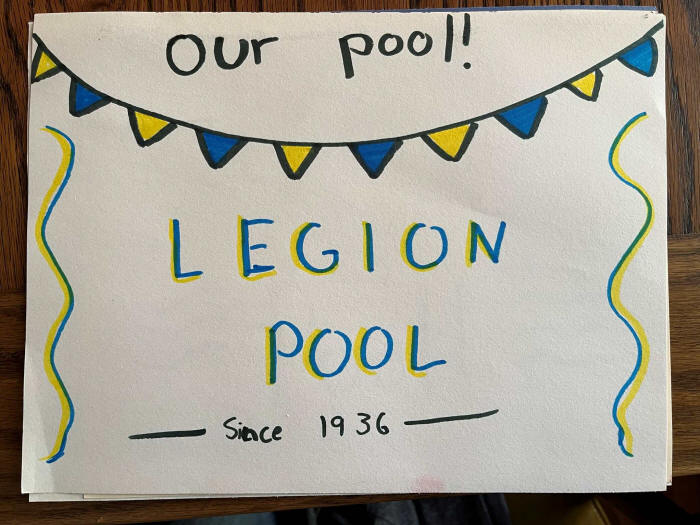 our pool!
LEGION
POOL
Since 1936